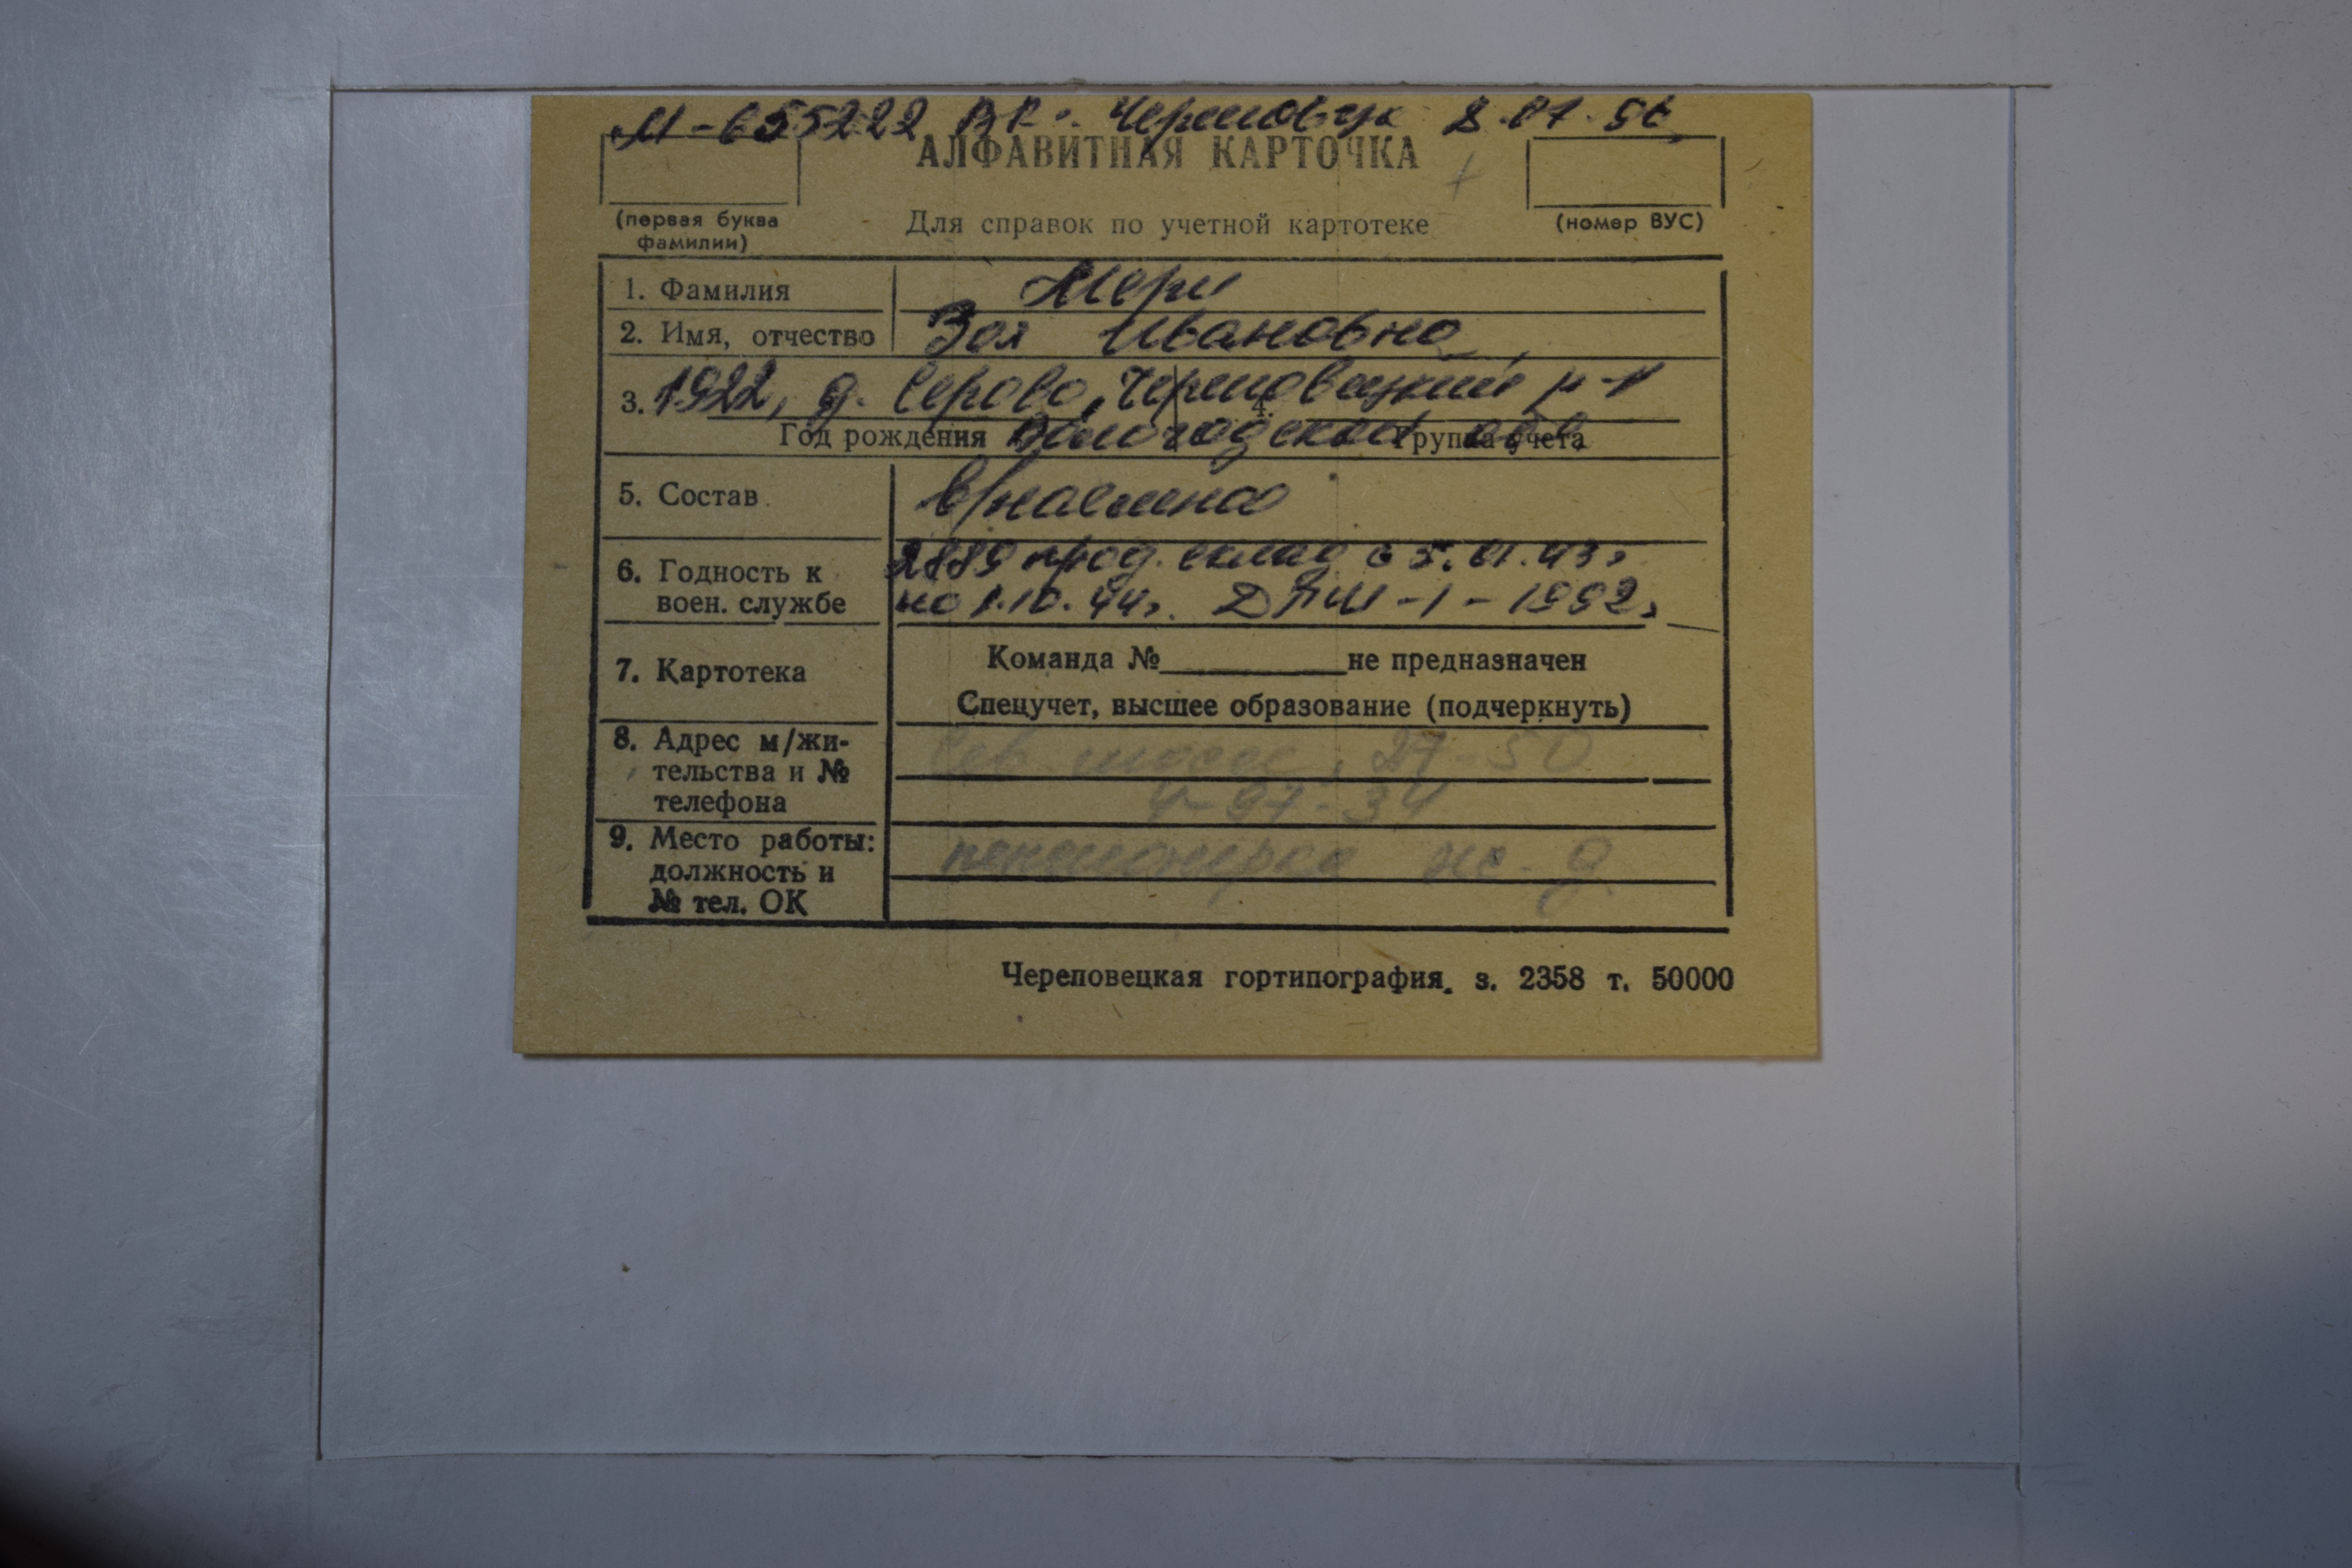 М-655222 ВК г. Череповца 8.01.96
АЛФАВИТНАЯ КАРТОЧКА
(первая буква
фамилии)
Для справок по учетной картотеке
(номер ВУС)
1. Фамилия Мери
2. Имя, отчество Зоя Ивановна
3. 1922, д. Серово, Череповецкий р-н
4.
Год рождения Вологодской обл. Группа учета
5. Состав
6. Годность к
воен. службе
2889 прод. склад с 5.01.43г
по 1.10.44г. 1-1992г
7. Картотека
Команда № не предназначен
Спецучет, высшее образование (подчеркнуть)
8. Адрес м/жи-
тельства и №
телефона
Сев. шоссе, 27-50
4-97-34
9. Место работы:
должность и
№ тел. ОК
пенсионерка
Череповецкая гортипография. з. 2358 т. 50000